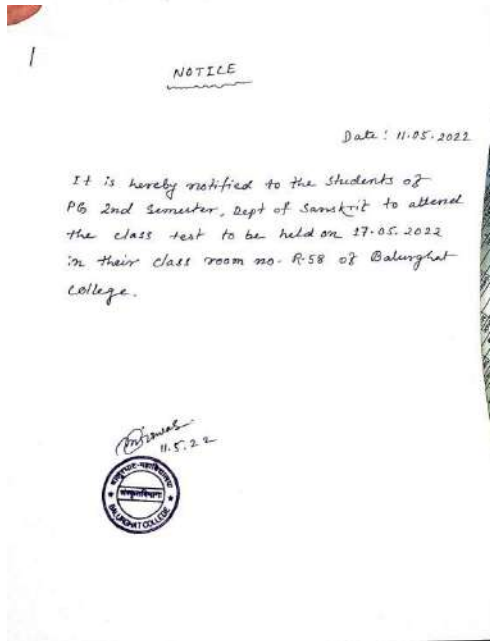 1
NOTICE
Date: 11.05.2022
It is hereby notified to the students of
PG 2nd Semester, Dept of Sanskrit to attend
the class test to be held on 17.05.2022
in their class room no. R-58 of Balurghat
College.
11.5.22
संस्कृतविभागः
BALURGHAT COLLEGE